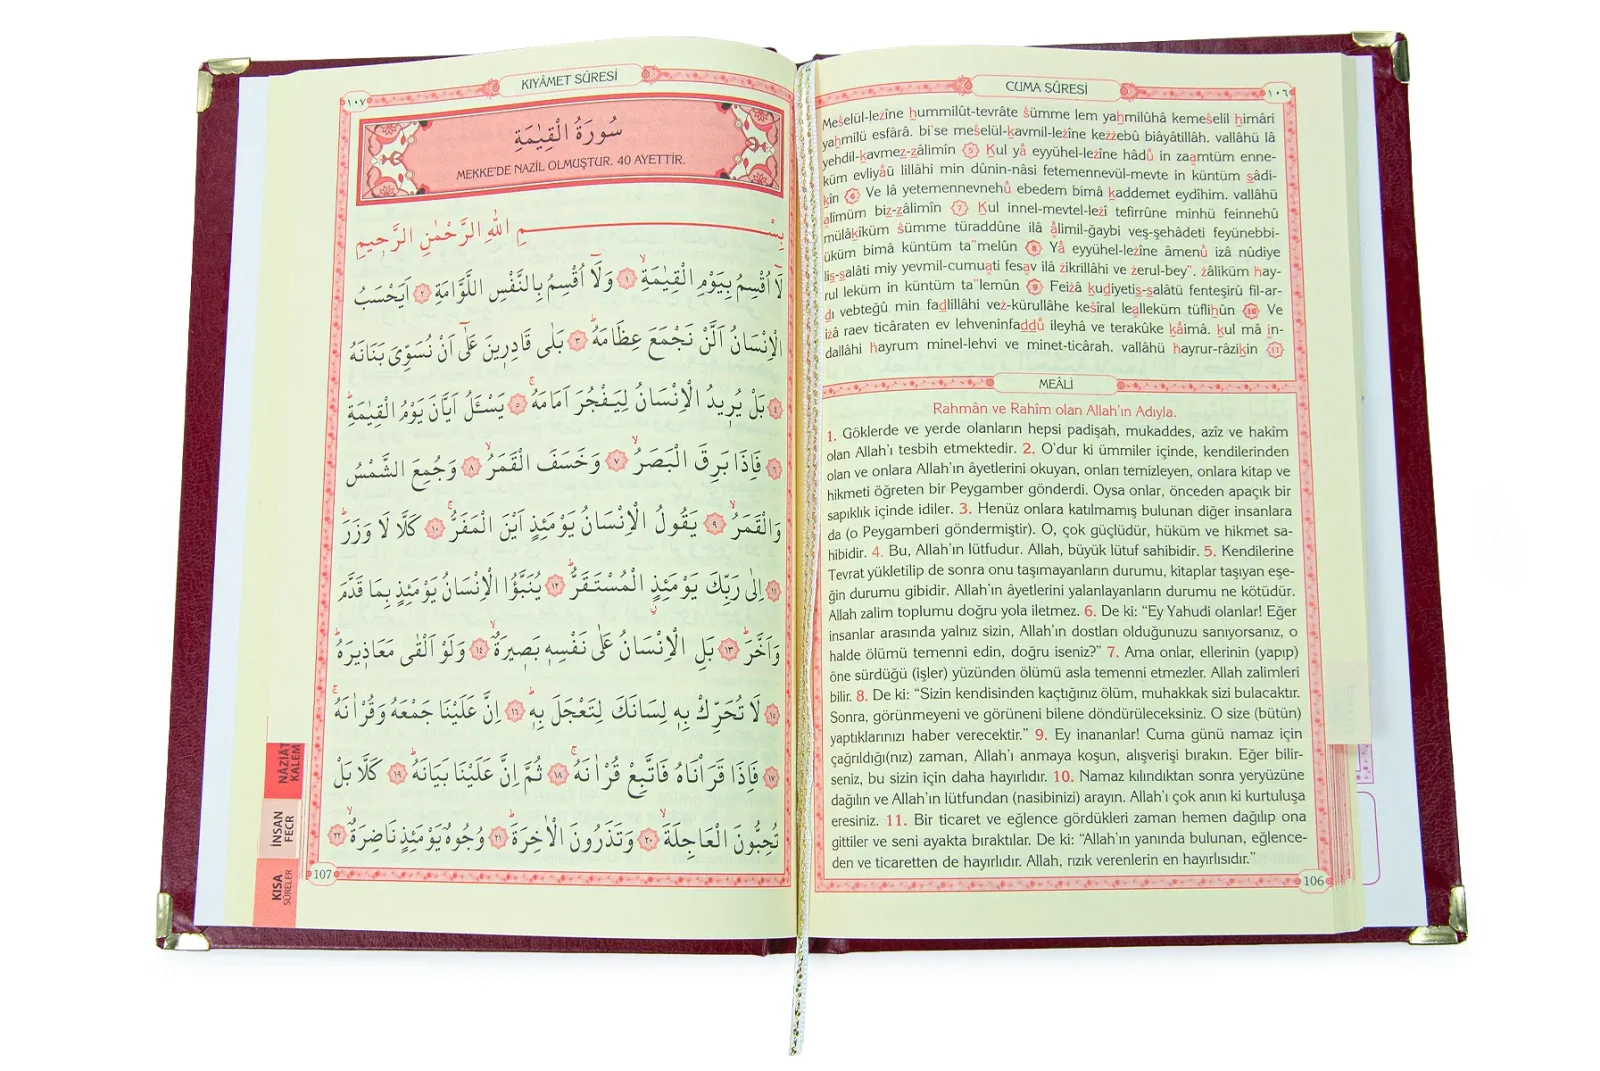 CUMA SÛRESİ
١٠٦
Meśelül-leżîne ḥummilût-tevrâte śümme lem yaḥmilûhâ kemeśelil ḥimâri
yaḥmilü esfârâ. bi'se meśelül-ḳavmil-leżîne keżżebû biâyâtillâh. vallâhü lâ
yehdil-ḳavmeẓ-ẓâlimîn ٥ Ḳul yâ eyyühel-leżîne hâdû in zaamtüm enne-
küm evliyâü lillâhi min dûnin-nâsi fetemennevül-mevte in küntüm ṣâdi-
ḳîn ٦ Ve lâ yetemennevnehû ebedem bimâ ḳaddemet eydîhim. vallâhü
alîmüm biẓ-ẓâlimîn ٧ Ḳul innel-mevtel-leżî tefirrûne minhü feinnehû
mülâḳîküm śümme türaddûne ilâ âlimil-ğaybi veş-şehâdeti feyünebbi-
üküm bimâ küntüm ta"melûn ٨ Yâ eyyühel-leżîne âmenû iżâ nûdiye
liṣ-ṣalâti miy yevmil-cumuati fesav ilâ żikrillâhi ve żerul-bey". żâliküm ḫay-
rul leküm in küntüm ta"lemûn ٩ Feiżâ ḳuḍiyetiṣ-ṣalâtü fenteşirû fil-ar-
ḍı vebteğû min faḍlillâhi veż-kürullâhe keśîral lealleküm tüfliḥûn ١٠ Ve
iżâ raev ticâraten ev lehveninfaḍḍû ileyhâ ve terakûke ḳâimâ. ḳul mâ in-
dallâhi ḫayrum minel-lehvi ve minet-ticârah. vallâhü ḫayrur-râziḳîn ١١
MEÂLİ
Rahmân ve Rahîm olan Allah'ın Adıyla.
1. Göklerde ve yerde olanların hepsi padişah, mukaddes, azîz ve hakîm
olan Allah'ı tesbih etmektedir. 2. O'dur ki ümmiler içinde, kendilerinden
olan ve onlara Allah'ın âyetlerini okuyan, onları temizleyen, onlara kitap ve
hikmeti öğreten bir Peygamber gönderdi. Oysa onlar, önceden apaçık bir
sapıklık içinde idiler. 3. Henüz onlara katılmamış bulunan diğer insanlara
da (o Peygamberi göndermiştir). O, çok güçlüdür, hüküm ve hikmet sa-
hibidir. 4. Bu, Allah'ın lütfudur. Allah, büyük lütuf sahibidir. 5. Kendilerine
Tevrat yükletilip de sonra onu taşımayanların durumu, kitaplar taşıyan eşe-
ğin durumu gibidir. Allah'ın âyetlerini yalanlayanların durumu ne kötüdür.
Allah zalim toplumu doğru yola iletmez. 6. De ki: “Ey Yahudi olanlar! Eğer
insanlar arasında yalnız sizin, Allah'ın dostları olduğunuzu sanıyorsanız, o
halde ölümü temenni edin, doğru iseniz?” 7. Ama onlar, ellerinin (yapıp)
öne sürdüğü (işler) yüzünden ölümü asla temenni etmezler. Allah zalimleri
bilir. 8. De ki: “Sizin kendisinden kaçtığınız ölüm, muhakkak sizi bulacaktır.
Sonra, görünmeyeni ve görüneni bilene döndürüleceksiniz. O size (bütün)
yaptıklarınızı haber verecektir.” 9. Ey inananlar! Cuma günü namaz için
çağrıldığı(nız) zaman, Allah'ı anmaya koşun, alışverişi bırakın. Eğer bilir-
seniz, bu sizin için daha hayırlıdır. 10. Namaz kılındıktan sonra yeryüzüne
dağılın ve Allah'ın lütfundan (nasibinizi) arayın. Allah'ı çok anın ki kurtuluşa
eresiniz. 11. Bir ticaret ve eğlence gördükleri zaman hemen dağılıp ona
gittiler ve seni ayakta bıraktılar. De ki: “Allah'ın yanında bulunan, eğlence-
den ve ticaretten de hayırlıdır. Allah, rızık verenlerin en hayırlısıdır.”
106
KIYÂMET SÛRESİ
١٠٧
سُورَةُ الْقِيٰمَةِ
MEKKE'DE NAZİL OLMUŞTUR. 40 AYETTİR.
بِسْمِ اللّٰهِ الرَّحْمٰنِ الرَّحٖيمِ
لَٓا اُقْسِمُ بِيَوْمِ الْقِيٰمَةِۙ ١ وَلَٓا اُقْسِمُ بِالنَّفْسِ اللَّوَّامَةِ ٢ اَيَحْسَبُ
الْاِنْسَانُ اَلَّنْ نَجْمَعَ عِظَامَهُۜ ٣ بَلٰى قَادِرٖينَ عَلٰٓى اَنْ نُسَوِّىَ بَنَانَهُ
٤ بَلْ يُرٖيدُ الْاِنْسَانُ لِيَفْجُرَ اَمَامَهُۚ ٥ يَسْـَٔلُ اَيَّانَ يَوْمُ الْقِيٰمَةِۜ
٦ فَاِذَا بَرِقَ الْبَصَرُۙ ٧ وَخَسَفَ الْقَمَرُۙ ٨ وَجُمِعَ الشَّمْسُ
وَالْقَمَرُۙ ٩ يَقُولُ الْاِنْسَانُ يَوْمَئِذٍ اَيْنَ الْمَفَرُّۚ ١٠ كَلَّا لَا وَزَرَۜ
١١ اِلٰى رَبِّكَ يَوْمَئِذٍ الْمُسْتَقَرُّۜ ١٢ يُنَبَّؤُا الْاِنْسَانُ يَوْمَئِذٍ بِمَا قَدَّمَ
وَاَخَّرَۜ ١٣ بَلِ الْاِنْسَانُ عَلٰى نَفْسِهٖ بَصٖيرَةٌۙ ١٤ وَلَوْ اَلْقٰى مَعَاذٖيرَهُۜ
١٥ لَا تُحَرِّكْ بِهٖ لِسَانَكَ لِتَعْجَلَ بِهٖۜ ١٦ اِنَّ عَلَيْنَا جَمْعَهُ وَقُرْاٰنَهُۚ
١٧ فَاِذَا قَرَاْنَاهُ فَاتَّبِعْ قُرْاٰنَهُۚ ١٨ ثُمَّ اِنَّ عَلَيْنَا بَيَانَهُۜ ١٩ كَلَّا بَلْ
تُحِبُّونَ الْعَاجِلَةَۙ ٢٠ وَتَذَرُونَ الْاٰخِرَةَۜ ٢١ وُجُوهٌ يَوْمَئِذٍ نَاضِرَةٌۙ ٢٢
107
NÂZİÂT
KALEM
İNSAN
FECR
KISA
SÛRELER